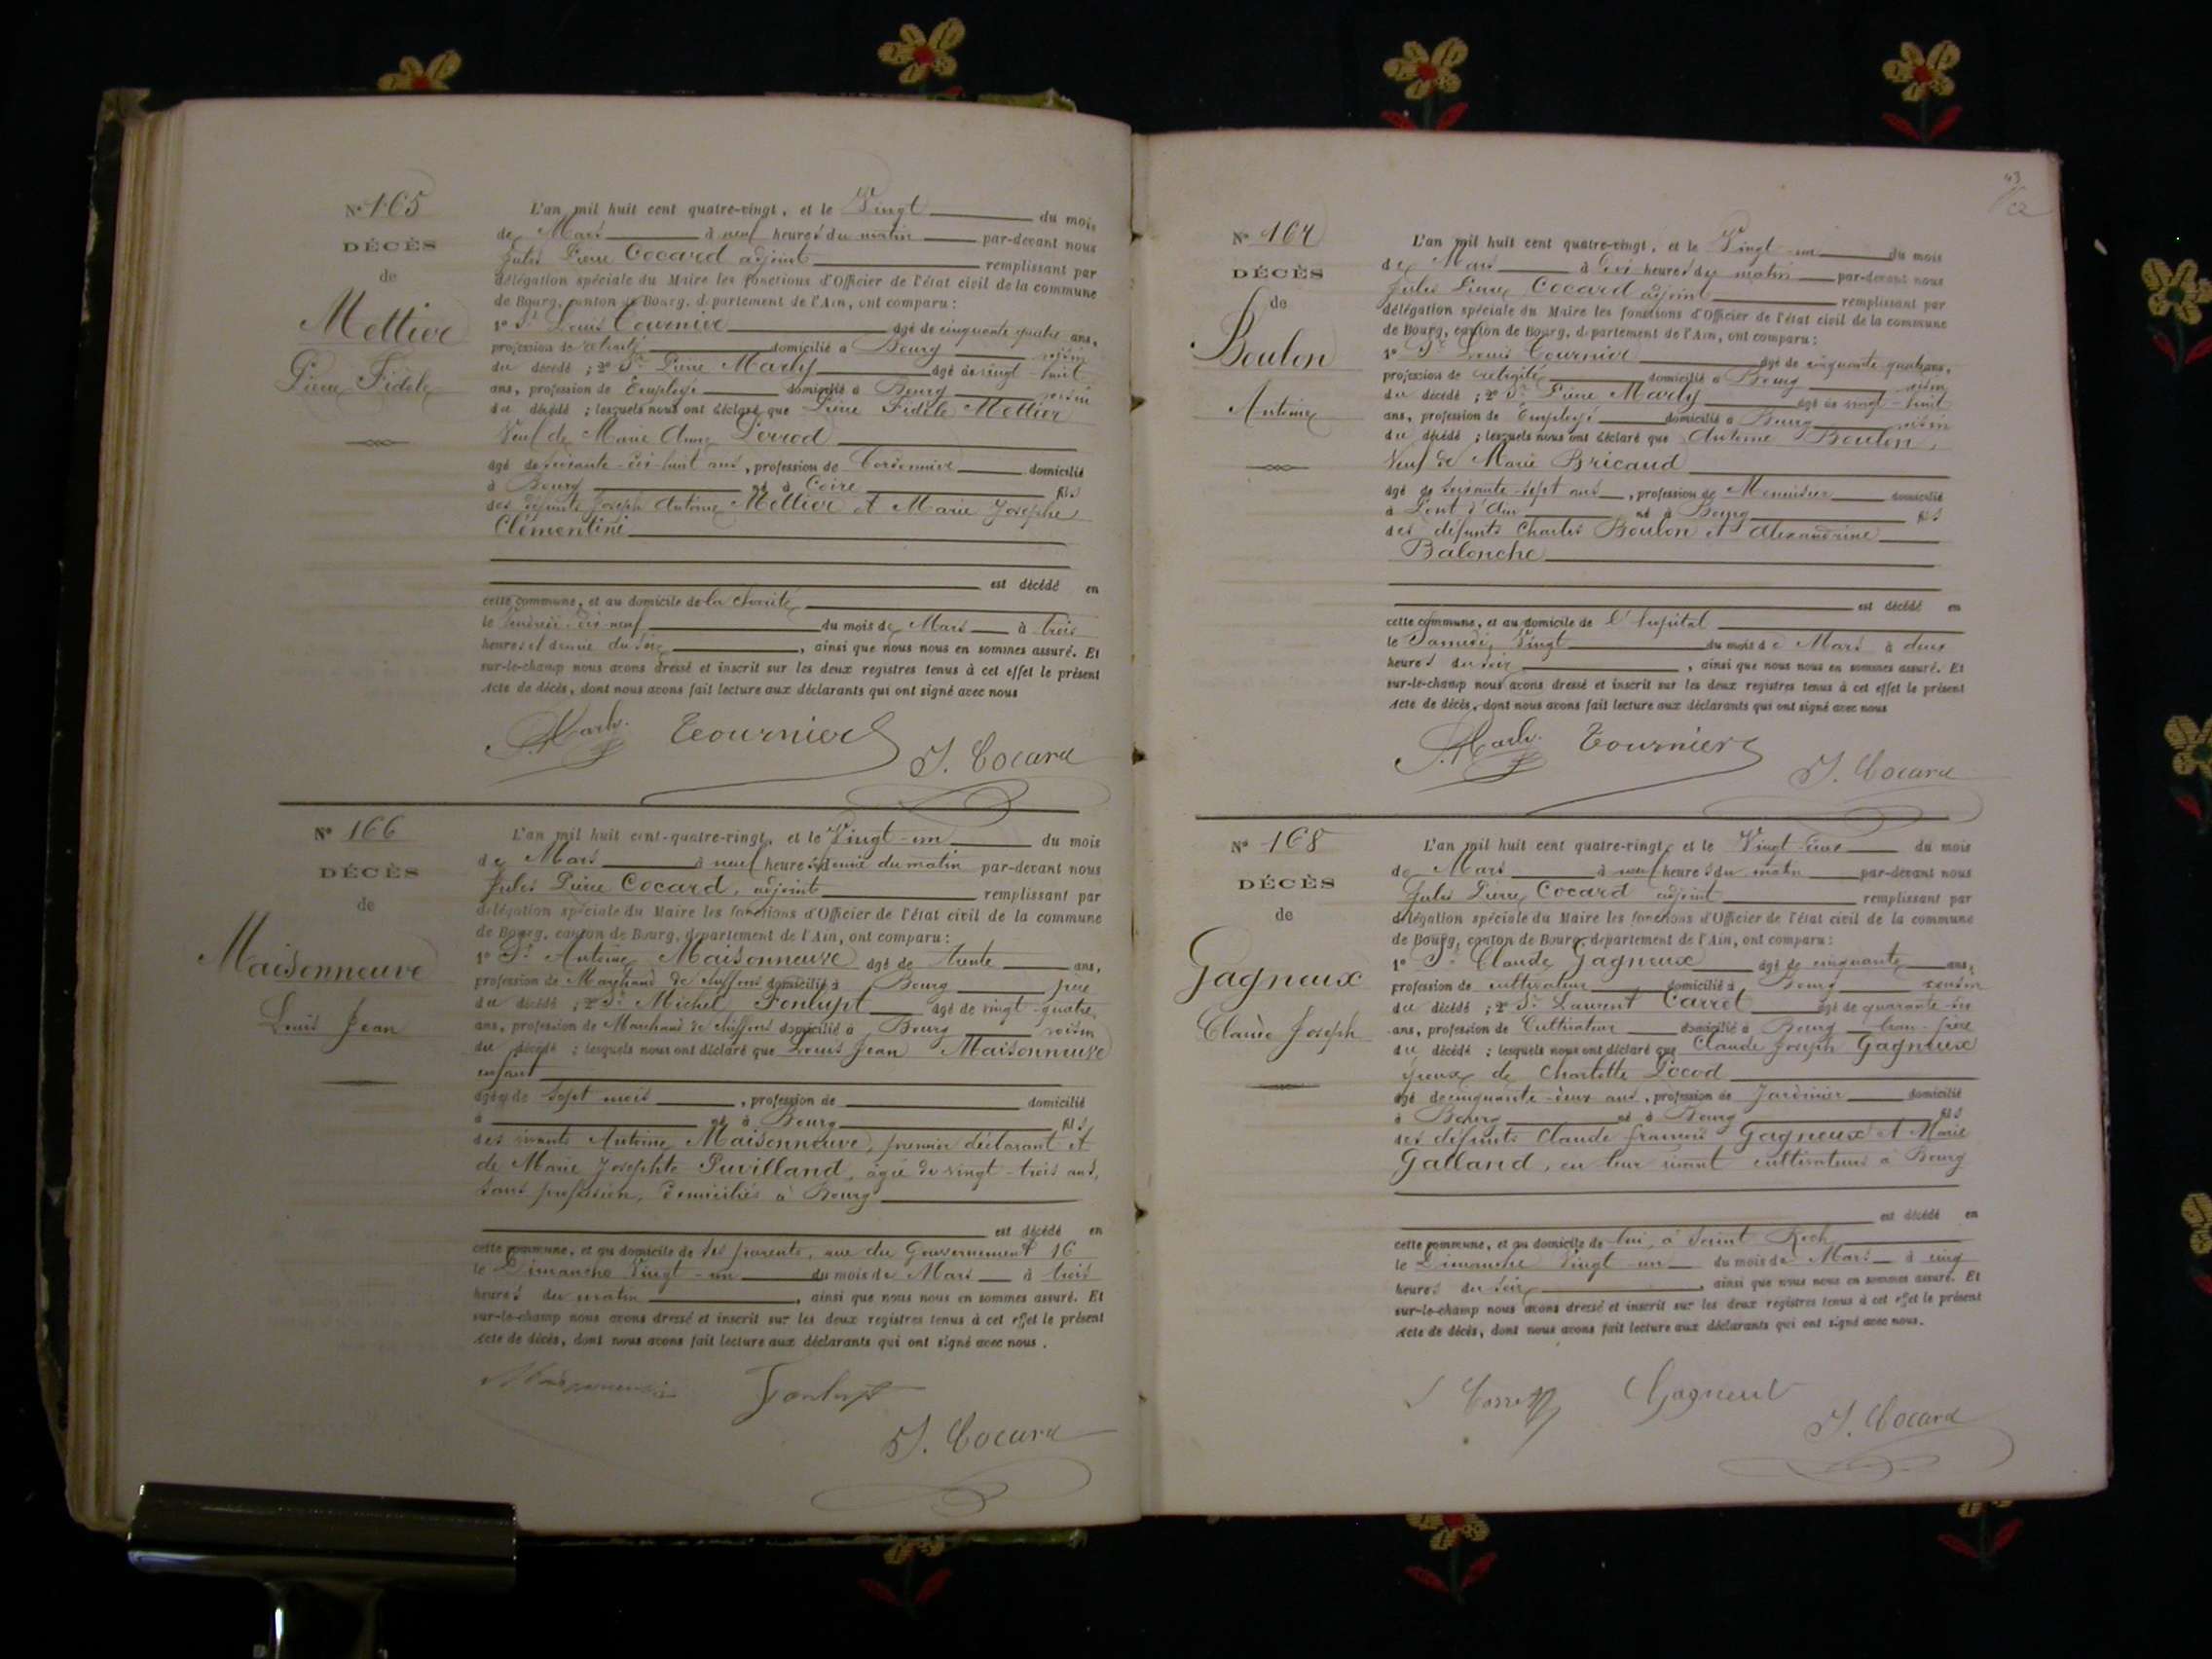 N° 165
DÉCÈS
de
Mettier
Pierre Fidèle
L'an mil huit cent quatre-vingt, et le Vingt du mois
de Mars à neuf heures du matin par-devant nous
Jules Pierre Cocard adjoint remplissant par
délégation spéciale du Maire les fonctions d'Officier de l'état civil de la commune
de Bourg, canton de Bourg, département de l'Ain, ont comparu :
1° Sr Louis Tournier âgé de cinquante quatre ans,
profession de retraité domicilié à Bourg voisin
du décédé ; 2° Sr Pierre Marly âgé de vingt-huit
ans, profession de Employé domicilié à Bourg voisin
du décédé ; lesquels nous ont déclaré que Pierre Fidèle Mettier
Veuf de Marie Anne Perrod
âgé de soixante-dix-huit ans, profession de Cordonnier domicilié
à Bourg né à Coire fils
des défunts Joseph Antoine Mettier et Marie Josephe
Clémentine
est décédé en
cette commune, et au domicile de la Charité
le Vendredi dix-neuf du mois de Mars à trois
heures et demie du soir, ainsi que nous nous en sommes assuré. Et
sur-le-champ nous avons dressé et inscrit sur les deux registres tenus à cet effet le présent
Acte de décès, dont nous avons fait lecture aux déclarants qui ont signé avec nous
P. Marly. Tournier
J. Cocard
N° 166
DÉCÈS
de
Maisonneuve
Louis Jean
L'an mil huit cent-quatre-vingt, et le Vingt-un du mois
de Mars à neuf heures et demie du matin par-devant nous
Jules Pierre Cocard, adjoint remplissant par
délégation spéciale du Maire les fonctions d'Officier de l'état civil de la commune
de Bourg, canton de Bourg, département de l'Ain, ont comparu :
1° Sr Antoine Maisonneuve âgé de trente ans,
profession de Marchand de chiffons domicilié à Bourg père
du décédé ; 2° Sr Michel Fonlupt âgé de vingt-quatre
ans, profession de Marchand de chiffons domicilié à Bourg voisin
du décédé ; lesquels nous ont déclaré que Louis Jean Maisonneuve
enfant
âgé de sept mois, profession de domicilié
à né à Bourg fils
des vivants Antoine Maisonneuve, premier déclarant et
de Marie Josephte Puvilland, âgée de vingt-trois ans,
sans profession, domiciliés à Bourg
est décédé en
cette commune, et au domicile de ses parents, rue du Gouvernement 16
le Dimanche Vingt-un du mois de Mars à trois
heures du matin, ainsi que nous nous en sommes assuré. Et
sur-le-champ nous avons dressé et inscrit sur les deux registres tenus à cet effet le présent
Acte de décès, dont nous avons fait lecture aux déclarants qui ont signé avec nous.
Maisonneuve Fonlupt
J. Cocard
43
N° 167
DÉCÈS
de
Boulon
Antoine
L'an mil huit cent quatre-vingt, et le Vingt-un du mois
de Mars à dix heures du matin par-devant nous
Jules Pierre Cocard adjoint remplissant par
délégation spéciale du Maire les fonctions d'Officier de l'état civil de la commune
de Bourg, canton de Bourg, département de l'Ain, ont comparu :
1° Sr Louis Tournier âgé de cinquante quatre ans,
profession de retraité domicilié à Bourg voisin
du décédé ; 2° Sr Pierre Marly âgé de vingt-huit
ans, profession de Employé domicilié à Bourg voisin
du décédé ; lesquels nous ont déclaré que Antoine Boulon,
Veuf de Marie Bricaud
âgé de soixante-sept ans, profession de Menuisier domicilié
à Pont d'Ain né à Bourg fils
des défunts Charles Boulon et Alexandrine
Balonche
est décédé en
cette commune, et au domicile de l'hôpital
le Samedi Vingt du mois de Mars à deux
heures du soir, ainsi que nous nous en sommes assuré. Et
sur-le-champ nous avons dressé et inscrit sur les deux registres tenus à cet effet le présent
Acte de décès, dont nous avons fait lecture aux déclarants qui ont signé avec nous
P. Marly. Tournier
J. Cocard
N° 168
DÉCÈS
de
Gagneux
Claude Joseph
L'an mil huit cent quatre-vingt, et le Vingt-deux du mois
de Mars à neuf heures du matin par-devant nous
Jules Pierre Cocard adjoint remplissant par
délégation spéciale du Maire les fonctions d'Officier de l'état civil de la commune
de Bourg, canton de Bourg, département de l'Ain, ont comparu :
1° Sr Claude Gagneux âgé de cinquante ans,
profession de cultivateur domicilié à Bourg cousin
du décédé ; 2° Sr Laurent Carret âgé de quarante-six
ans, profession de Cultivateur domicilié à Bourg beau-frère
du décédé ; lesquels nous ont déclaré que Claude Joseph Gagneux
époux de Charlotte Pocod
âgé de cinquante-deux ans, profession de Jardinier domicilié
à Bourg né à Bourg fils
des défunts Claude François Gagneux et Marie
Galland, en leur vivant cultivateurs à Bourg
est décédé en
cette commune, et au domicile de lui, à Saint Roch
le Dimanche Vingt-un du mois de Mars à cinq
heures du soir, ainsi que nous nous en sommes assuré. Et
sur-le-champ nous avons dressé et inscrit sur les deux registres tenus à cet effet le présent
Acte de décès, dont nous avons fait lecture aux déclarants qui ont signé avec nous.
Gagneux
J. Cocard